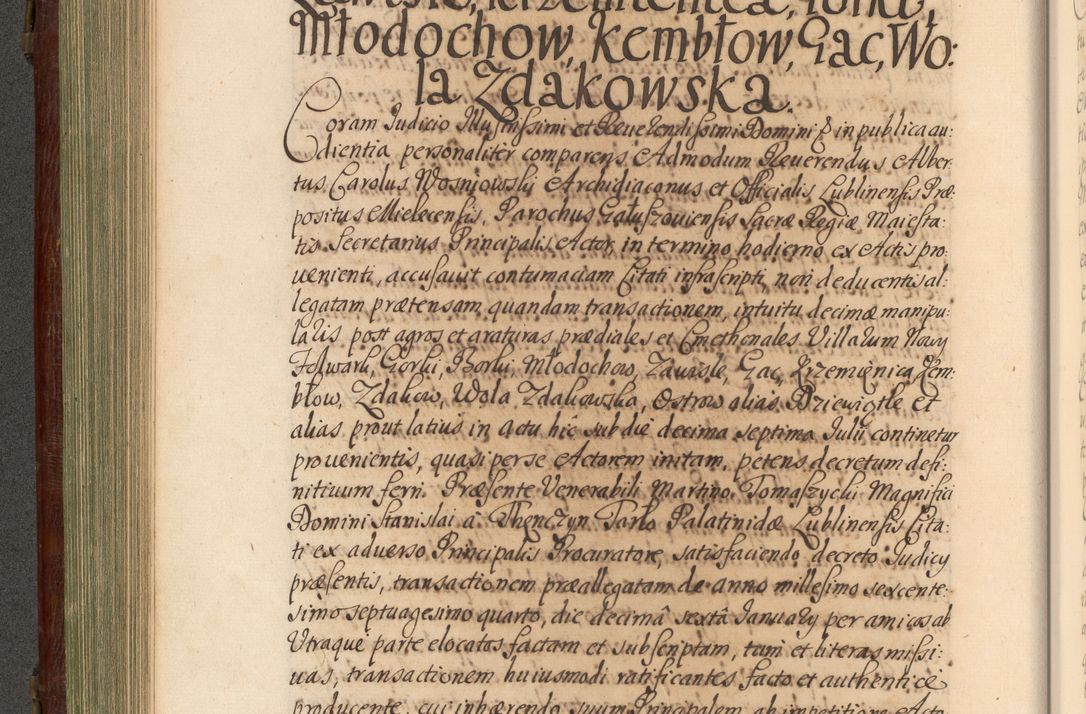 Zawisle, Krzemienica, Folw,
Młodochow, Kembłow, Gac, Wo:
la Zdakowska.
Coram Judicio Illustrissimi et Reuerendissimi Domini & in publica au:
dientia personaliter comparens Admodum Reuerendus Alber
tus Carolus Wosniowski Archidiaconus et Officialis Lublinensis Præ
positus Mielecensis, Parochus Gałuszouiensis Sacræ Regiæ Maiesta:
tis Secretarius Principalis Actor, in termino hodierno ex Actis pro:
uenienti, accusauit contumaciam Citati infrascripti, non deducentis al:
legatam prætensam, quandam transactionem, intuitu decimæ manipu:
laris post agros et araturas prædiales et Cmethonales Villarum Nowy
Folwark, Gorki, Borki, Młodochow, Zawisle, Gac, Krzemięnica, Kem:
błow, Zdakow, Wola Zdakowska, Ostrow alias Dziewiątle et
alias prout latius in actu hic sub die decima septima Julii continetur
prouenientis, quasi per se Actorem initam, petens decretum defi:
nitiuum ferri. Præsente Venerabili Martino Tomaszycki Magnifici
Domini Stanislai a Thenczyn Tarło Palatinidæ Lublinensis Cita:
ti ex aduerso Principalis Procuratore, satisfaciendo decreto Judicy
præsentis, transactionem præallegatam de anno millesimo sexcente:
simo septuagesimo quarto, die decimâ sextâ January per amicos ab
Utraque parte elocatos factam et subscriptam, tum et literas missi:
uas, transactionem huiusmodi ratificantes facto et authentice
producente, cui inhærendo suum Principalem ab impetitione Acto